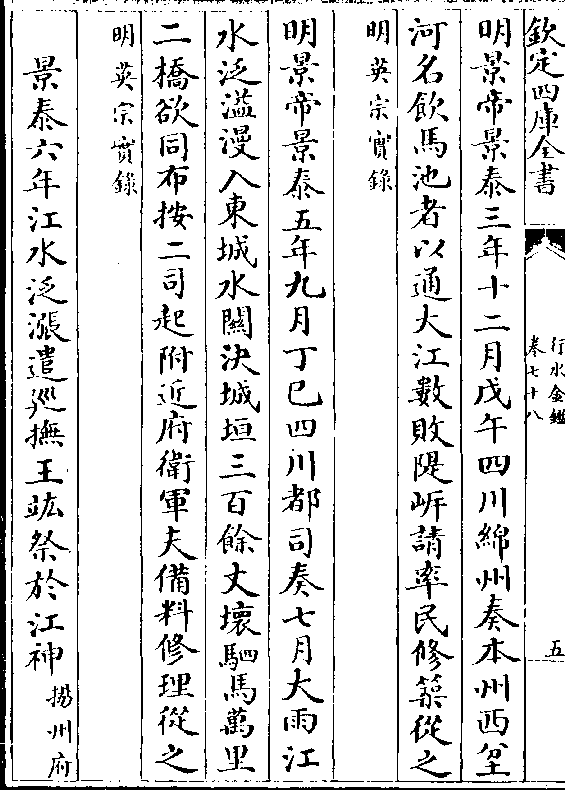 欽定四庫全書
行水金鑑
卷七十八
五
明景帝景泰三年十二月戊午四川綿州奏本州西坌
河名飲馬池者以通大江數敗隄㟁請率民修築從之
明英宗實錄
明景帝景泰五年九月丁巳四川都司奏七月大雨江
水泛溢漫入東城水關決城垣三百餘丈壞駟馬萬里
二橋欲同布按二司起附近府衛軍夫備料修理從之
明英宗實錄
景泰六年江水泛漲遣廵撫王竑祭於江神揚州府